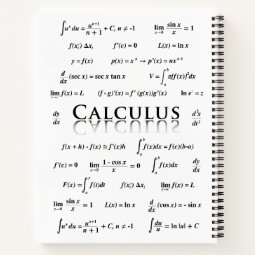 ∫uⁿ du = uⁿ⁺¹/(n+1) + C, n ≠ -1   lim x→0 sin x / x = 1
f(xᵢ*) Δxᵢ   f'(c) = 0   L(x) = ln x
y = f(x)   p(x) = xⁿ → p'(x) = nxⁿ⁻¹
d/dx (sec x) = sec x tan x   V = ∫ₐᵇ π[f(x)]² dx
lim f(x) = L   (f ∘ g)'(x) = f'(g(x))g'(x)   ln eᶻ = z
dy/dx   CALCULUS   d²y/dx²
f(x + h) - f(x) ≈ f'(x)h   ∫ₐᵇ f(x)dx = f(c)(b-a)
f'(c) = 0   lim x→0 1 - cos x / x = 0   ∫ₐᵇ f(x)dx   dy/dx
F(x) = ∫ f(t)dt   f(xᵢ*) Δxᵢ   lim f(x) = L
lim x→0 sin x / x = 1   L(x) = ln x   d/dx (cos x) = - sin x
∫uⁿ du = uⁿ⁺¹/(n+1) + C, n ≠ -1   ∫ du/u = ln |u| + C